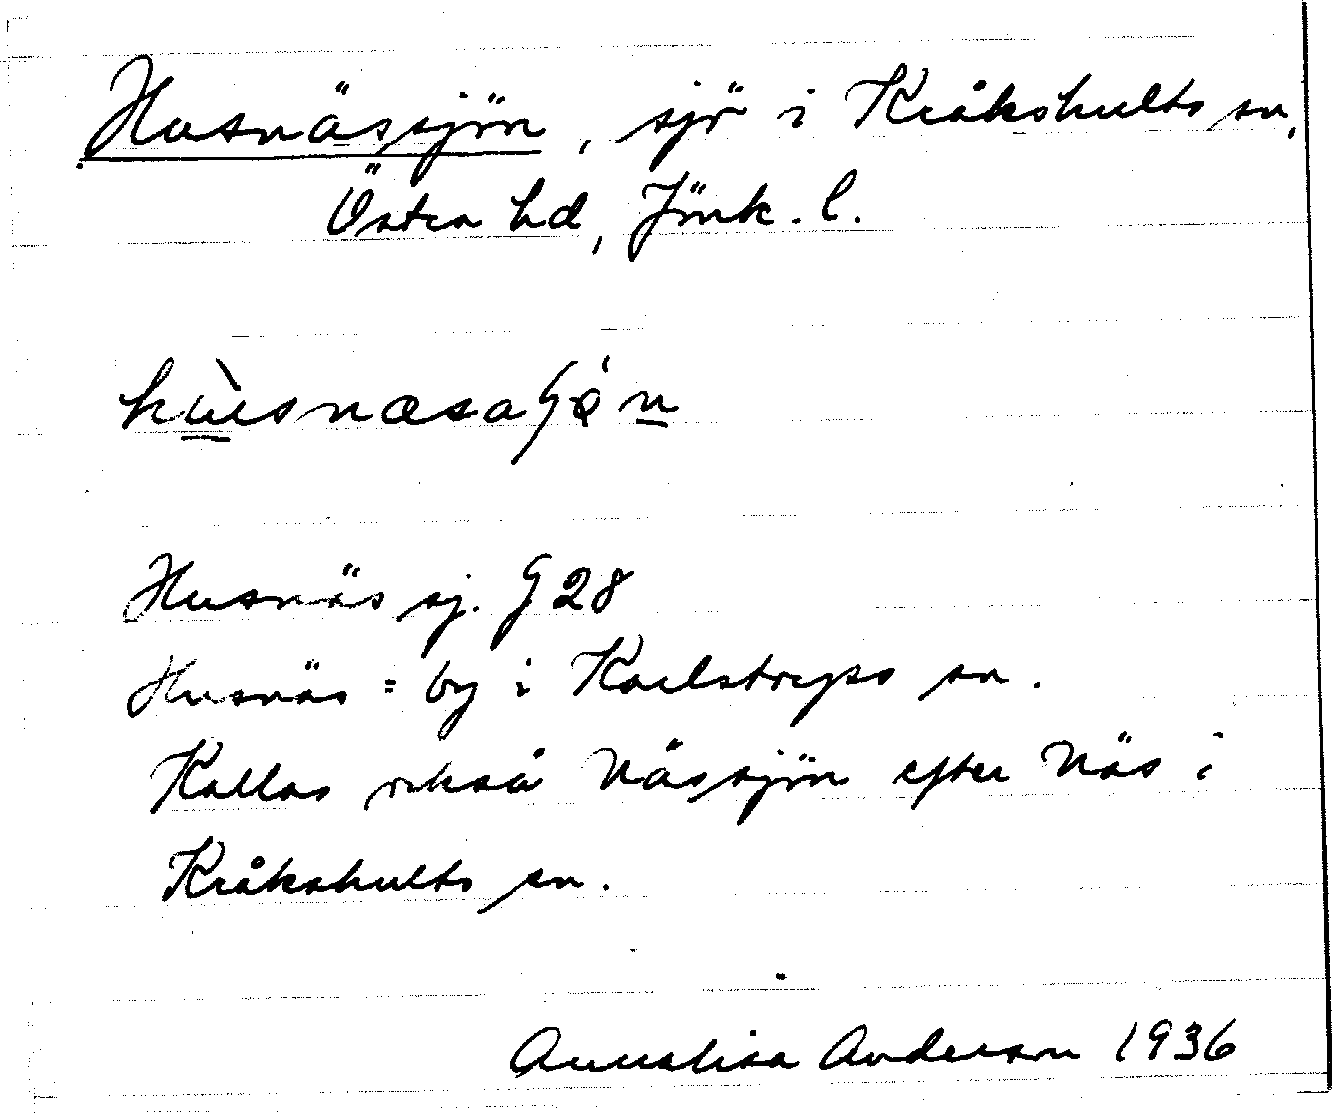 Husnässjön, sjö i Kråkshults sn,
Östra hd, Jönk. l.
hùsnæsaʃǿn
Husnäs sj. G 28
Husnäs = by i Karlstorps sn.
Kallas också Nässjön efter Näs i
Kråkshults sn.
Annalisa Anderson 1936